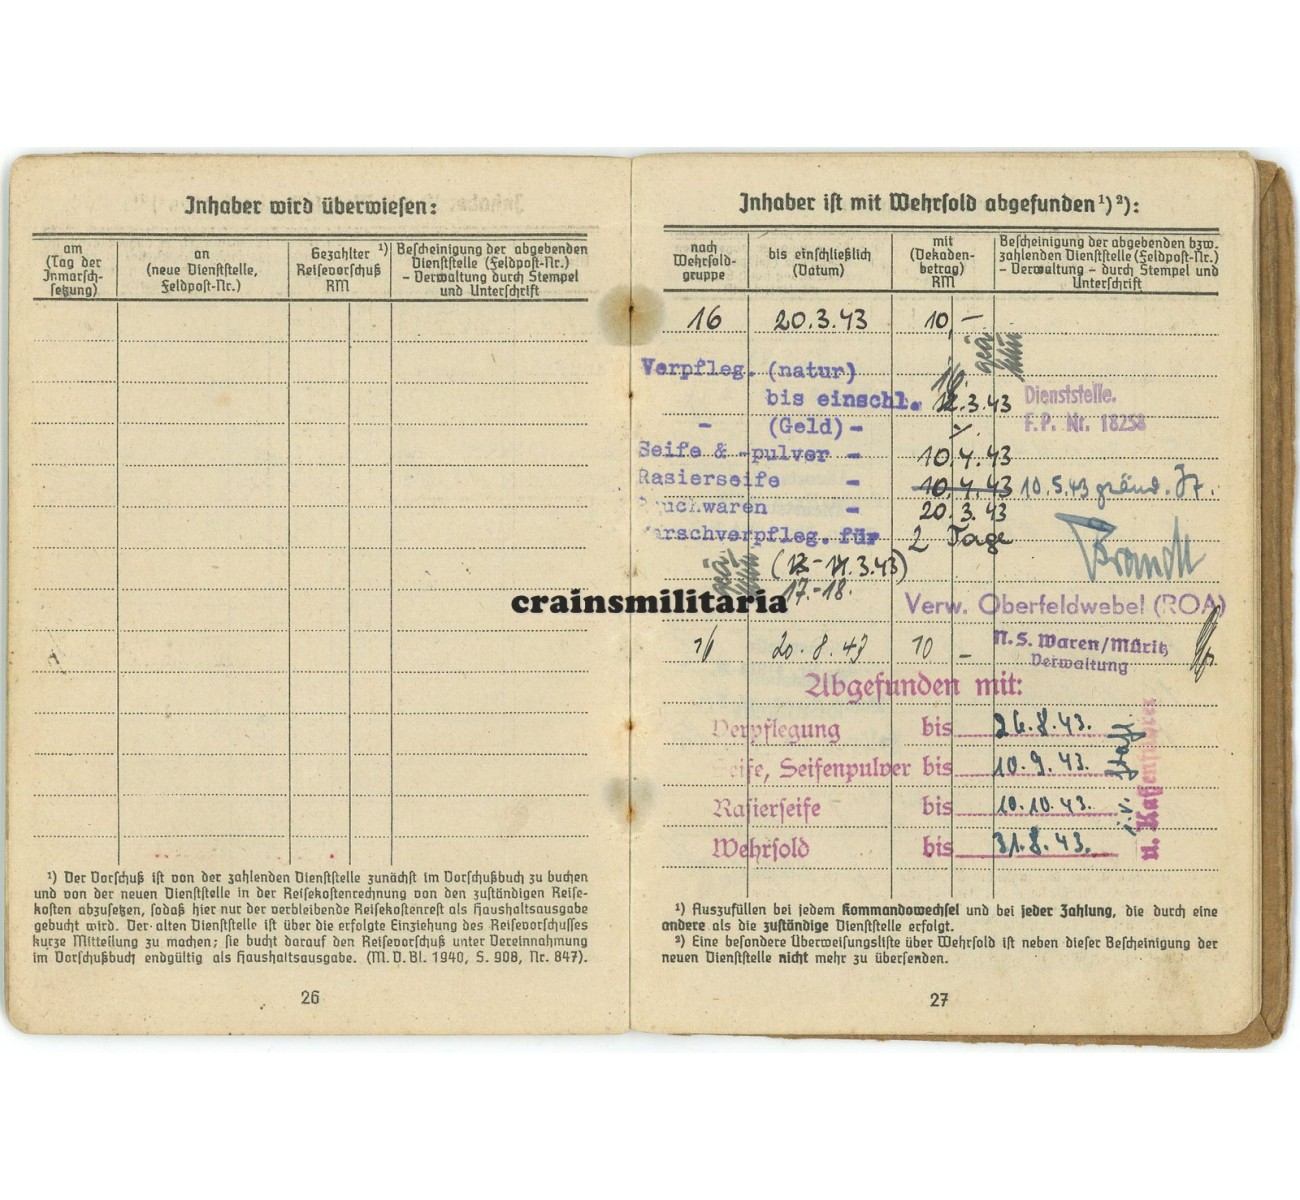 Inhaber wird überwiesen:
am
(Tag der
Inmarsch-
setzung)
an
(neue Dienststelle,
Feldpost-Nr.)
Gezahlter ¹)
Reisevorschuß
RM
Bescheinigung der abgebenden
Dienststelle (Feldpost-Nr.)
- Verwaltung durch Stempel
und Unterschrift
¹) Der Vorschuß ist von der zahlenden Dienststelle zunächst im Vorschußbuch zu buchen
und von der neuen Dienststelle in der Reisekostenrechnung von den zuständigen Reise-
kosten abzusetzen, sodaß hier nur der verbleibende Reisekostenrest als Haushaltsausgabe
gebucht wird. Der alten Dienststelle ist über die erfolgte Einziehung des Reisevorschusses
kurze Mitteilung zu machen; sie bucht darauf den Reisevorschuß unter Vereinnahmung
im Vorschußbuch endgültig als Haushaltsausgabe. (M. D. Bl. 1940, S. 908, Nr. 847).
26
Inhaber ist mit Wehrsold abgefunden ¹) ²):
nach
Wehrsold-
gruppe
bis einschließlich
(Datum)
mit
(Dekaden-
betrag)
RM
Bescheinigung der abgebenden bzw.
zahlenden Dienststelle (Feldpost-Nr.)
- Verwaltung - durch Stempel und
Unterschrift
16 20.3.43 10,-
Verpfleg. (natur)
bis einschl. .3.43 Dienststelle.
- (Geld) - F.P. Nr. 18258
Seife & -pulver - 10.4.43
Rasierseife - 10.4.43 10.5.43
uchwaren - 20.3.43
arschverpfleg. für 2 Tage
.3.43)
17.-18.
Brandt
Verw. Oberfeldwebel (ROA)
16 20.8.43 10 - N.S. Waren/Müritz
Verwaltung
Abgefunden mit:
Verpflegung bis 26.8.43.
Seife, Seifenpulver bis 10.9.43.
Rasierseife bis 10.10.43.
Wehrsold bis 31.8.43.
i.V.
u. Kassenführer
¹) Auszufüllen bei jedem Kommandowechsel und bei jeder Zahlung, die durch eine
andere als die zuständige Dienststelle erfolgt.
²) Eine besondere Überweisungsliste über Wehrsold ist neben dieser Bescheinigung der
neuen Dienststelle nicht mehr zu übersenden.
27
crainsmilitaria